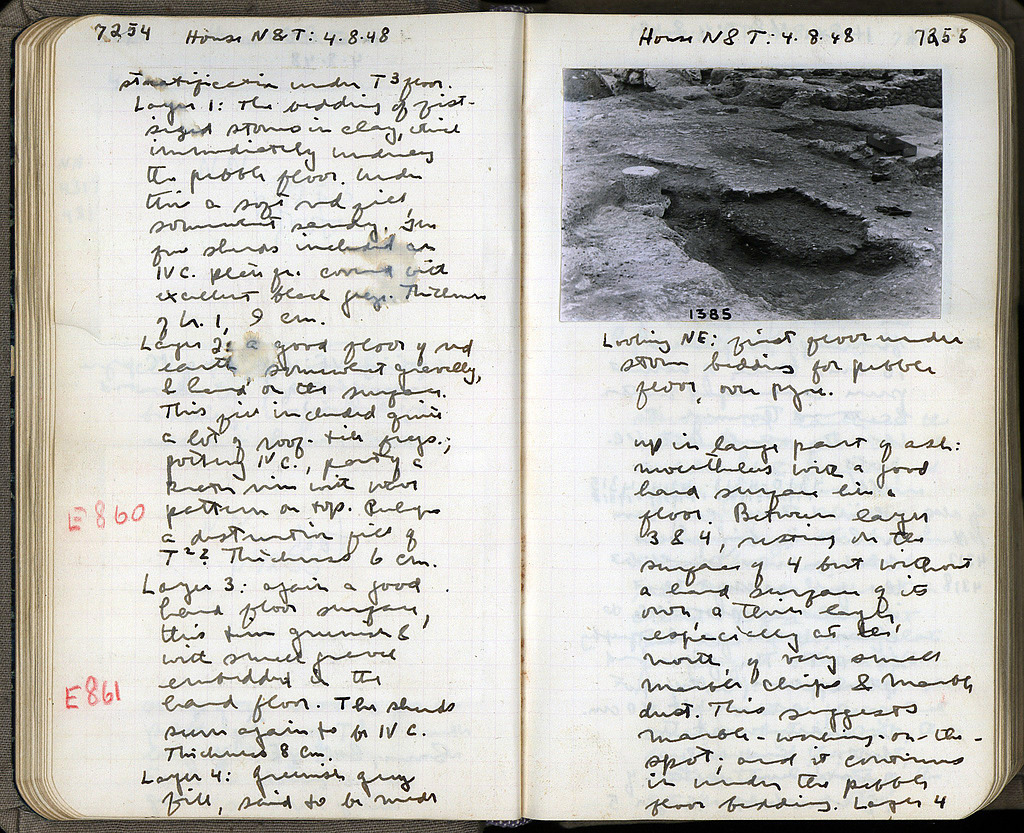 7254 House N&T: 4.8.48
stratification under T³ floor.
Layer 1: The bedding of fist-
sized stones in clay, which
immediately underlay
the pebble floor. Under
this a soft red fill,
somewhat sandy. The
few sherds included are
IV C. plus fr. covered with
excellent black glaze. Thickness
of lr. 1, 9 cm.
Layer 2: a good floor of red
earth, somewhat gravelly,
& hard on the surface.
This fill included quite
a lot of roof-tile frgs.;
pottery IV C., partly a
krater rim with wave
pattern on top. Perhaps
E860
a destruction fill of
T²? Thickness 6 cm.
Layer 3: again a good
hard floor surface,
this time greenish &
with small gravel
E861
embedded in the
hard floor. The sherds
seem again to be IV C.
Thickness 8 cm.
Layer 4: greenish gray
fill, said to be made
House N&T: 4.8.48 7255
1385
Looking NE: first floor under
stone bedding for pebble
floor, over pyre.
up in large part of ash:
nonetheless with a good
hard surface like a
floor. Between layer
3 & 4, resting on the
surface of 4 but without
a hard surface of its
own, a thin layer,
especially at the
north, of very small
marble chips & marble
dust. This suggests
marble-working-on-the-
spot; and it continues
in under the pebble
floor bedding. Layer 4